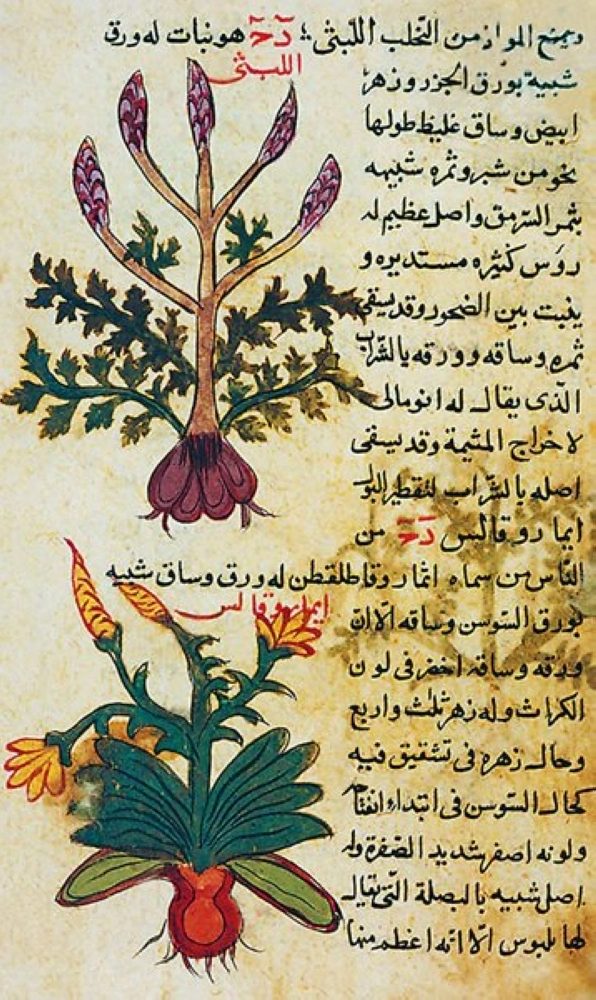 ويمنع المواد من التحلب اللبثى؛ دَحَ هو نبات له ورق
اللبثى
شبيه بورق الجزر وزهر
ابيض وساق غليظ طولها
نحو من شبر وثمره شبيهه
بثمر السرمق واصل عظيم له
روس كثيره مستديره و
ينبت بين الصخور وقد يسقى
ثمره وساقه وورقه بالشراب
الذى يقال له انومالى
لاخراج المشيمة وقد يسقى
اصله بالشراب لتقطير البول
ايما روقالس دَحَ من
الناس من سماه ايما روقاطلقطن له ورق وساق شبيه
ايما روقالس
بورق السوسن وساقه الا ان
ورقه وساقه اخضر فى لون
الكراث وله زهر ثلث واربع
وحال زهره فى تشقيق فيه
كحال السوسن فى ابتداء انفتاح
ولونه اصفر شديد الصفرة وله
اصل شبيه بالبصلة التى يقال
لها بلبوس الا انه اعظم منها